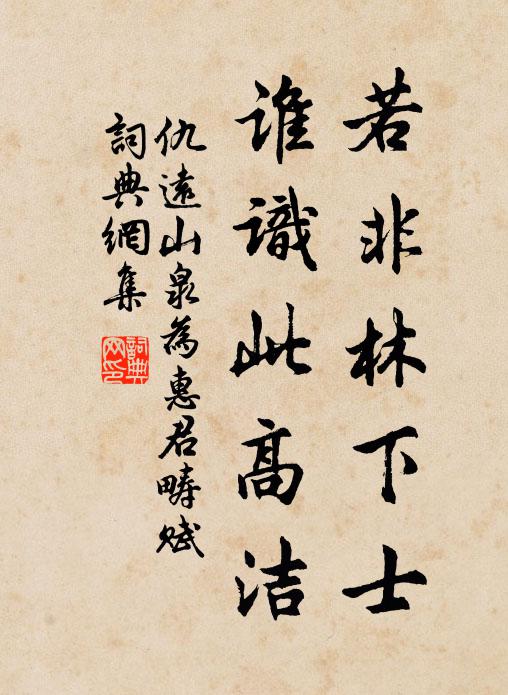 若非林下士
誰識此高洁
仇遠山泉為惠君疇賦
詞典網集
詞典网印